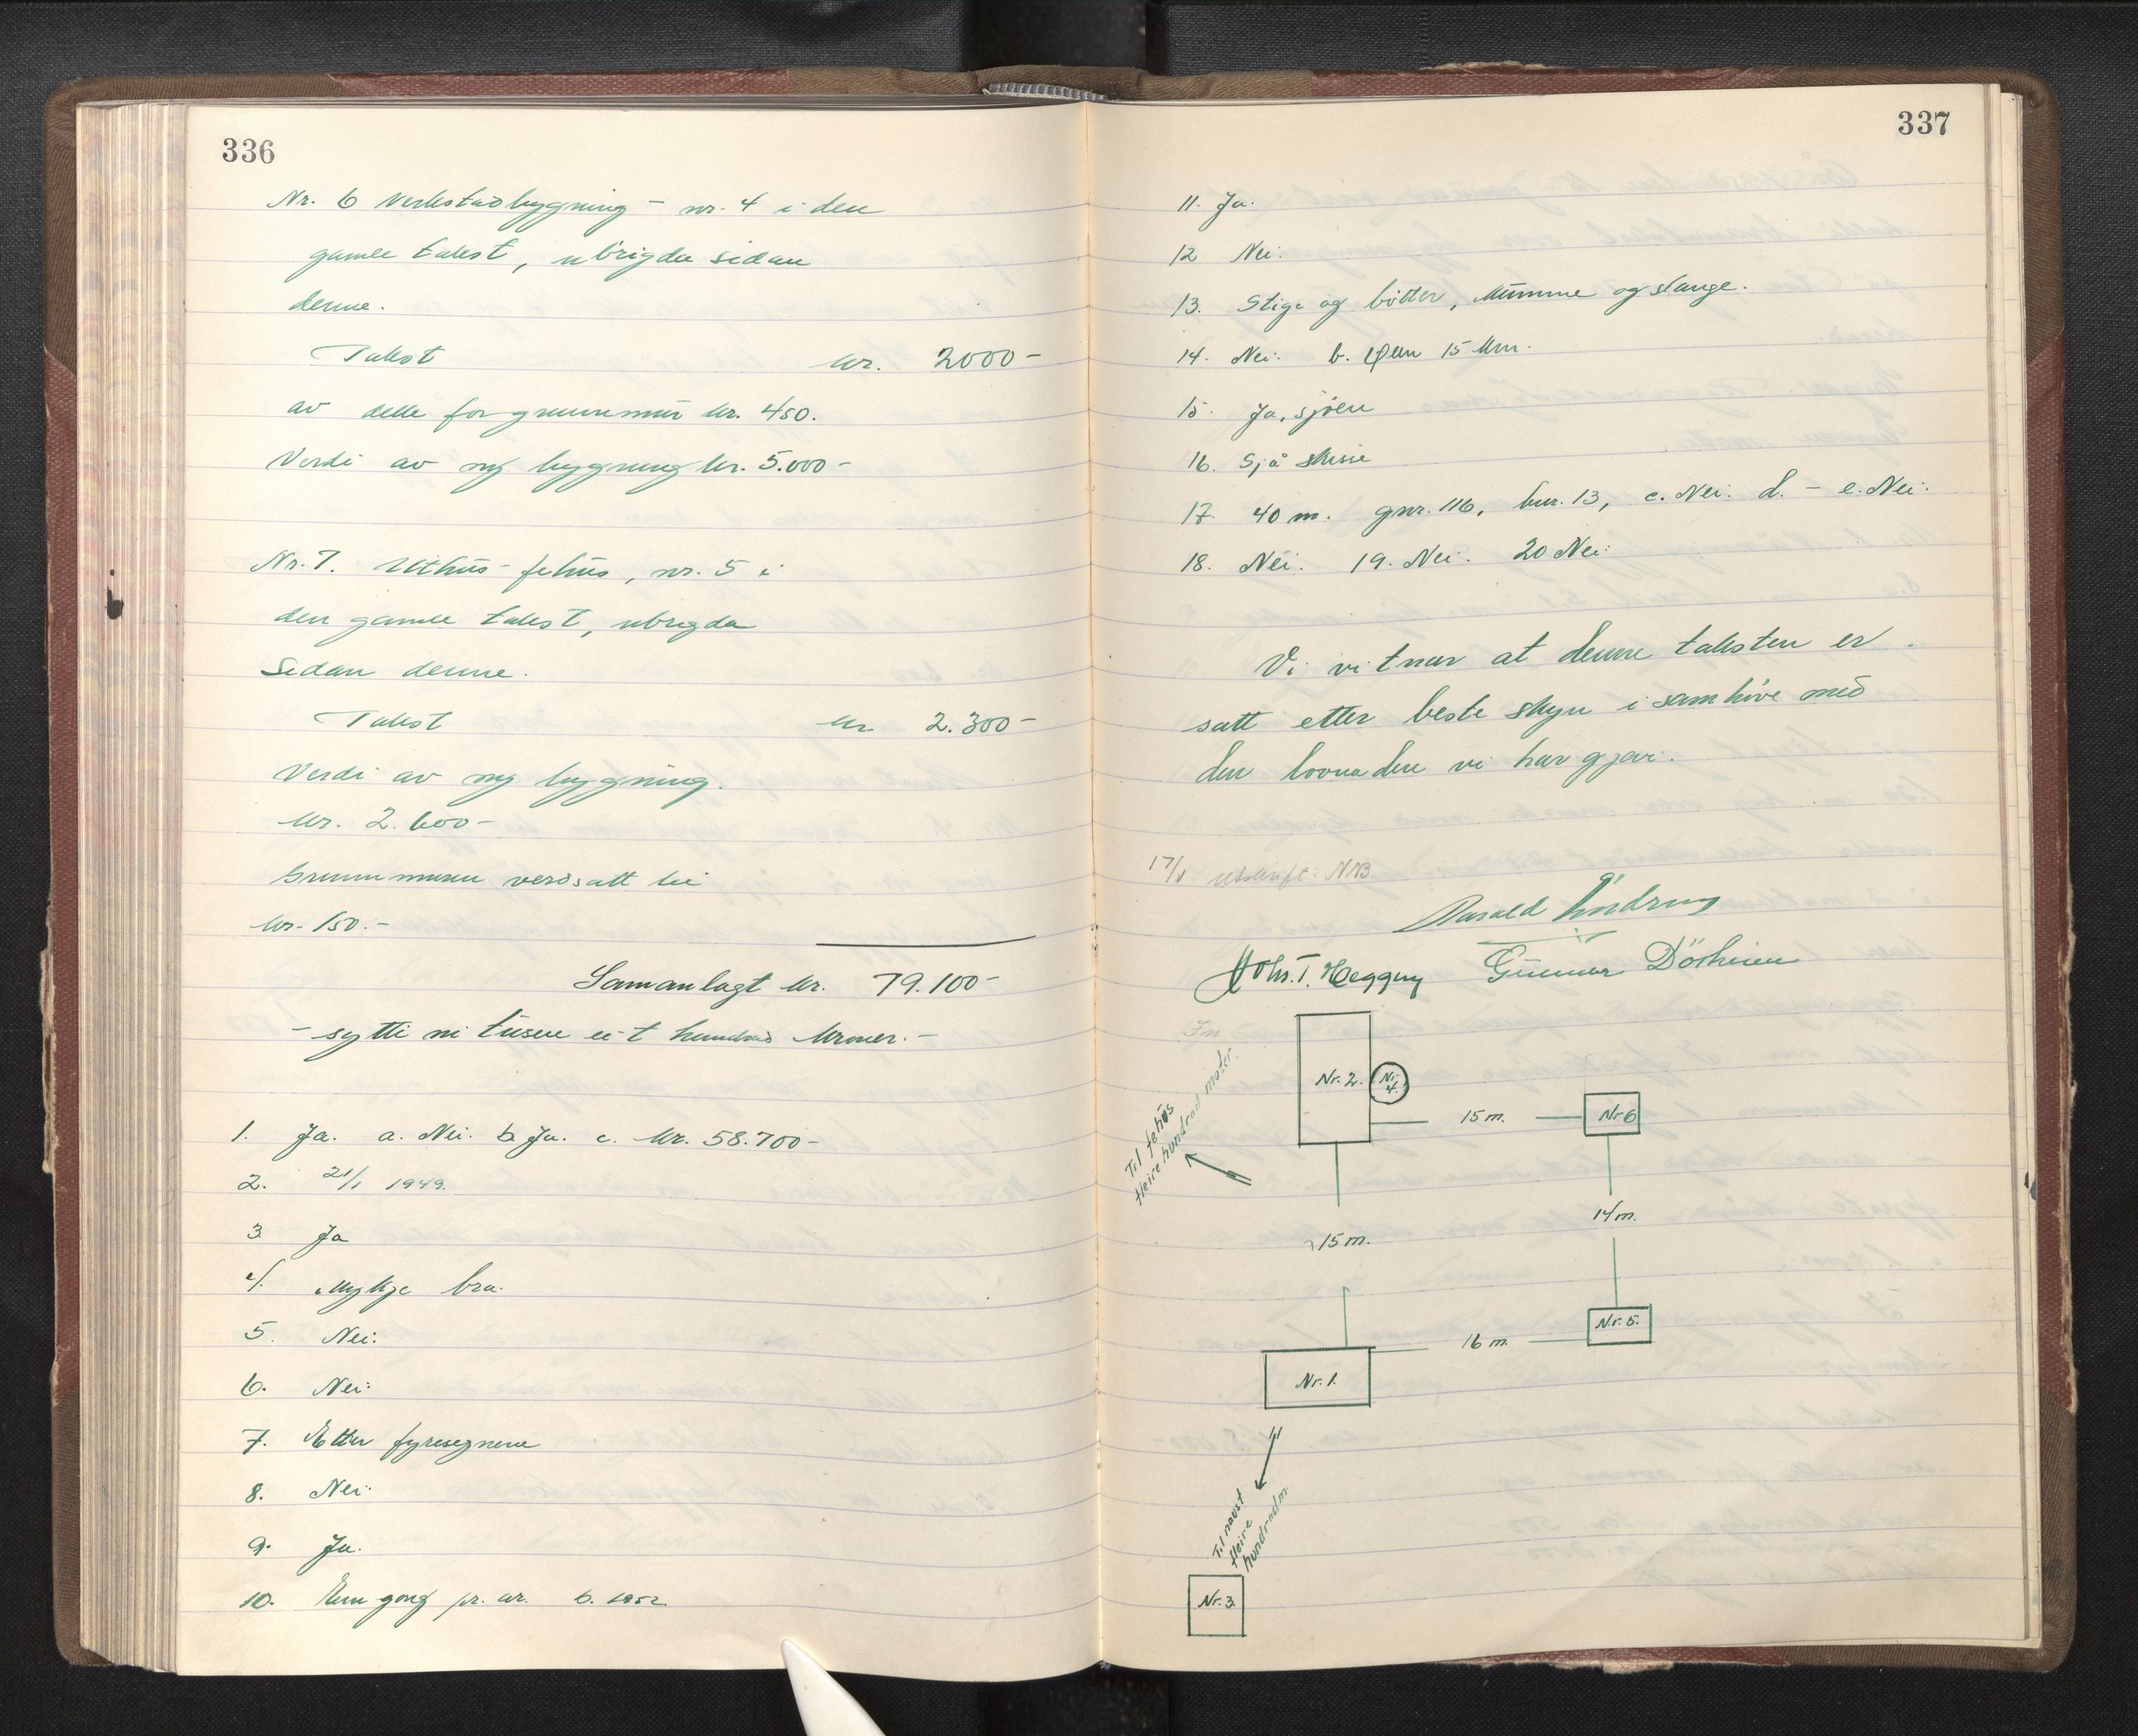 336
Nr. 6 Verkstadbygning – nr. 4 i den
gamle takst, ubrigda sidan
denne.
Takst kr. 2000 –
av dette for grunnmur kr. 450.
Verdi av ny bygning kr. 5.000 –
Nr. 7. Uthus- fehus, nr. 5 i
den gamle takst, ubrigda
sidan denne.
Takst kr 2.300 –
Verdi av ny bygning.
kr. 2.600 –
Grunnmuren verdsatt til
kr. 150. –
Samanlagt kr. 79.100 –
– sytti ni tusen eit hundrad kroner. –
1. Ja. a. Nei. b. Ja. c. kr. 58.700 –
2. 21/1 1949.
3. Ja
4. Mykje bra.
5. Nei.
6. Nei.
7. Etter fyresegnene
8. Nei.
9. Ja.
10. Ein gong pr. år. b. 1952
337
11. Ja.
12 Nei.
13. Stige og bøtter, krumme og slange.
14. Nei. b. 15 km.
15. Ja, sjøen
16. Sjå skisse
17. 40 m. gnr. 116, bnr. 13, c. Nei. d. – e. Nei.
18. Nei. 19. Nei. 20 Nei.
Vi vitnar at denne taksten er
satt etter beste skyn i samhøve med
den lovnaden vi har gjeve.
17/1 utskrift: NNB
Harald Indrøy
Johs. T. Heggøy Gunnar Dörheim
Nr. 2.
Nr. 4.
15 m.
Nr 6
Til fehus
fleire hundrad meter.
14 m.
15 m.
Nr. 5.
16 m.
Nr. 1.
Til naust
fleire
hundrad m.
Nr. 3